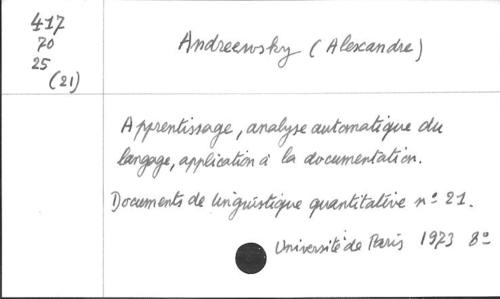 417
70
25
(21)
Andreewsky (Alexandre)
Apprentissage, analyse automatique du
langage, application à la documentation.
Documents de linguistique quantitative nº 21.
Université de Paris 1973 8º